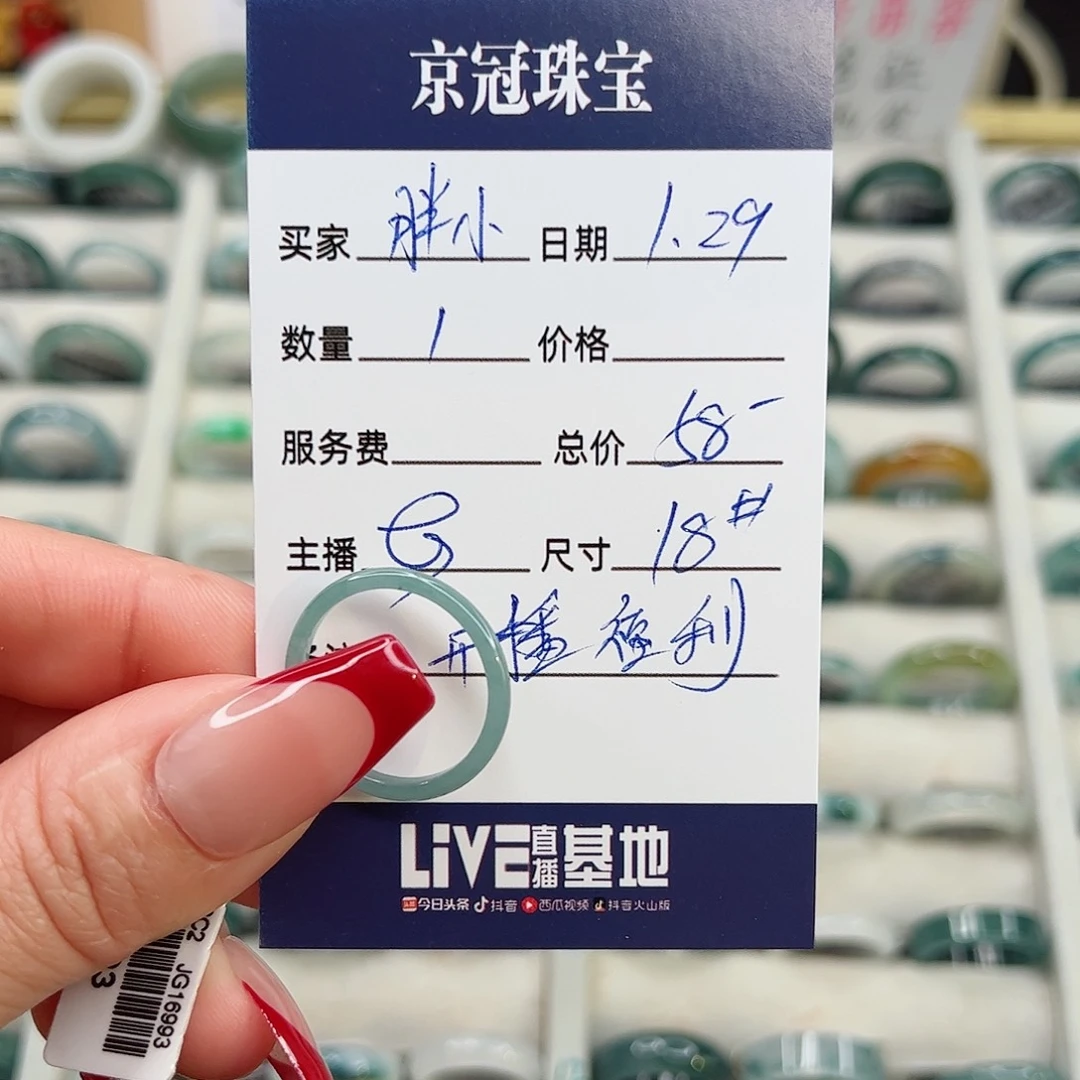 京冠珠宝
买家 胖小 日期 1.29
数量 1 价格
服务费 总价 58-
主播 尺寸 18#
开播福利
LIVE直播基地
今日头条 抖音 西瓜视频 抖音火山版
JG16993